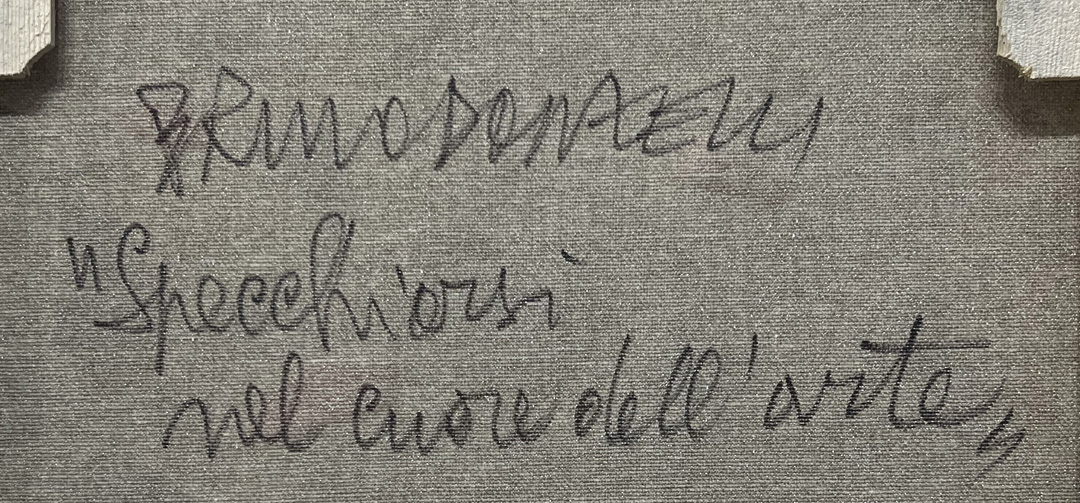 BRUNO DONZELLI
"Specchiarsi
nel cuore dell'arte"